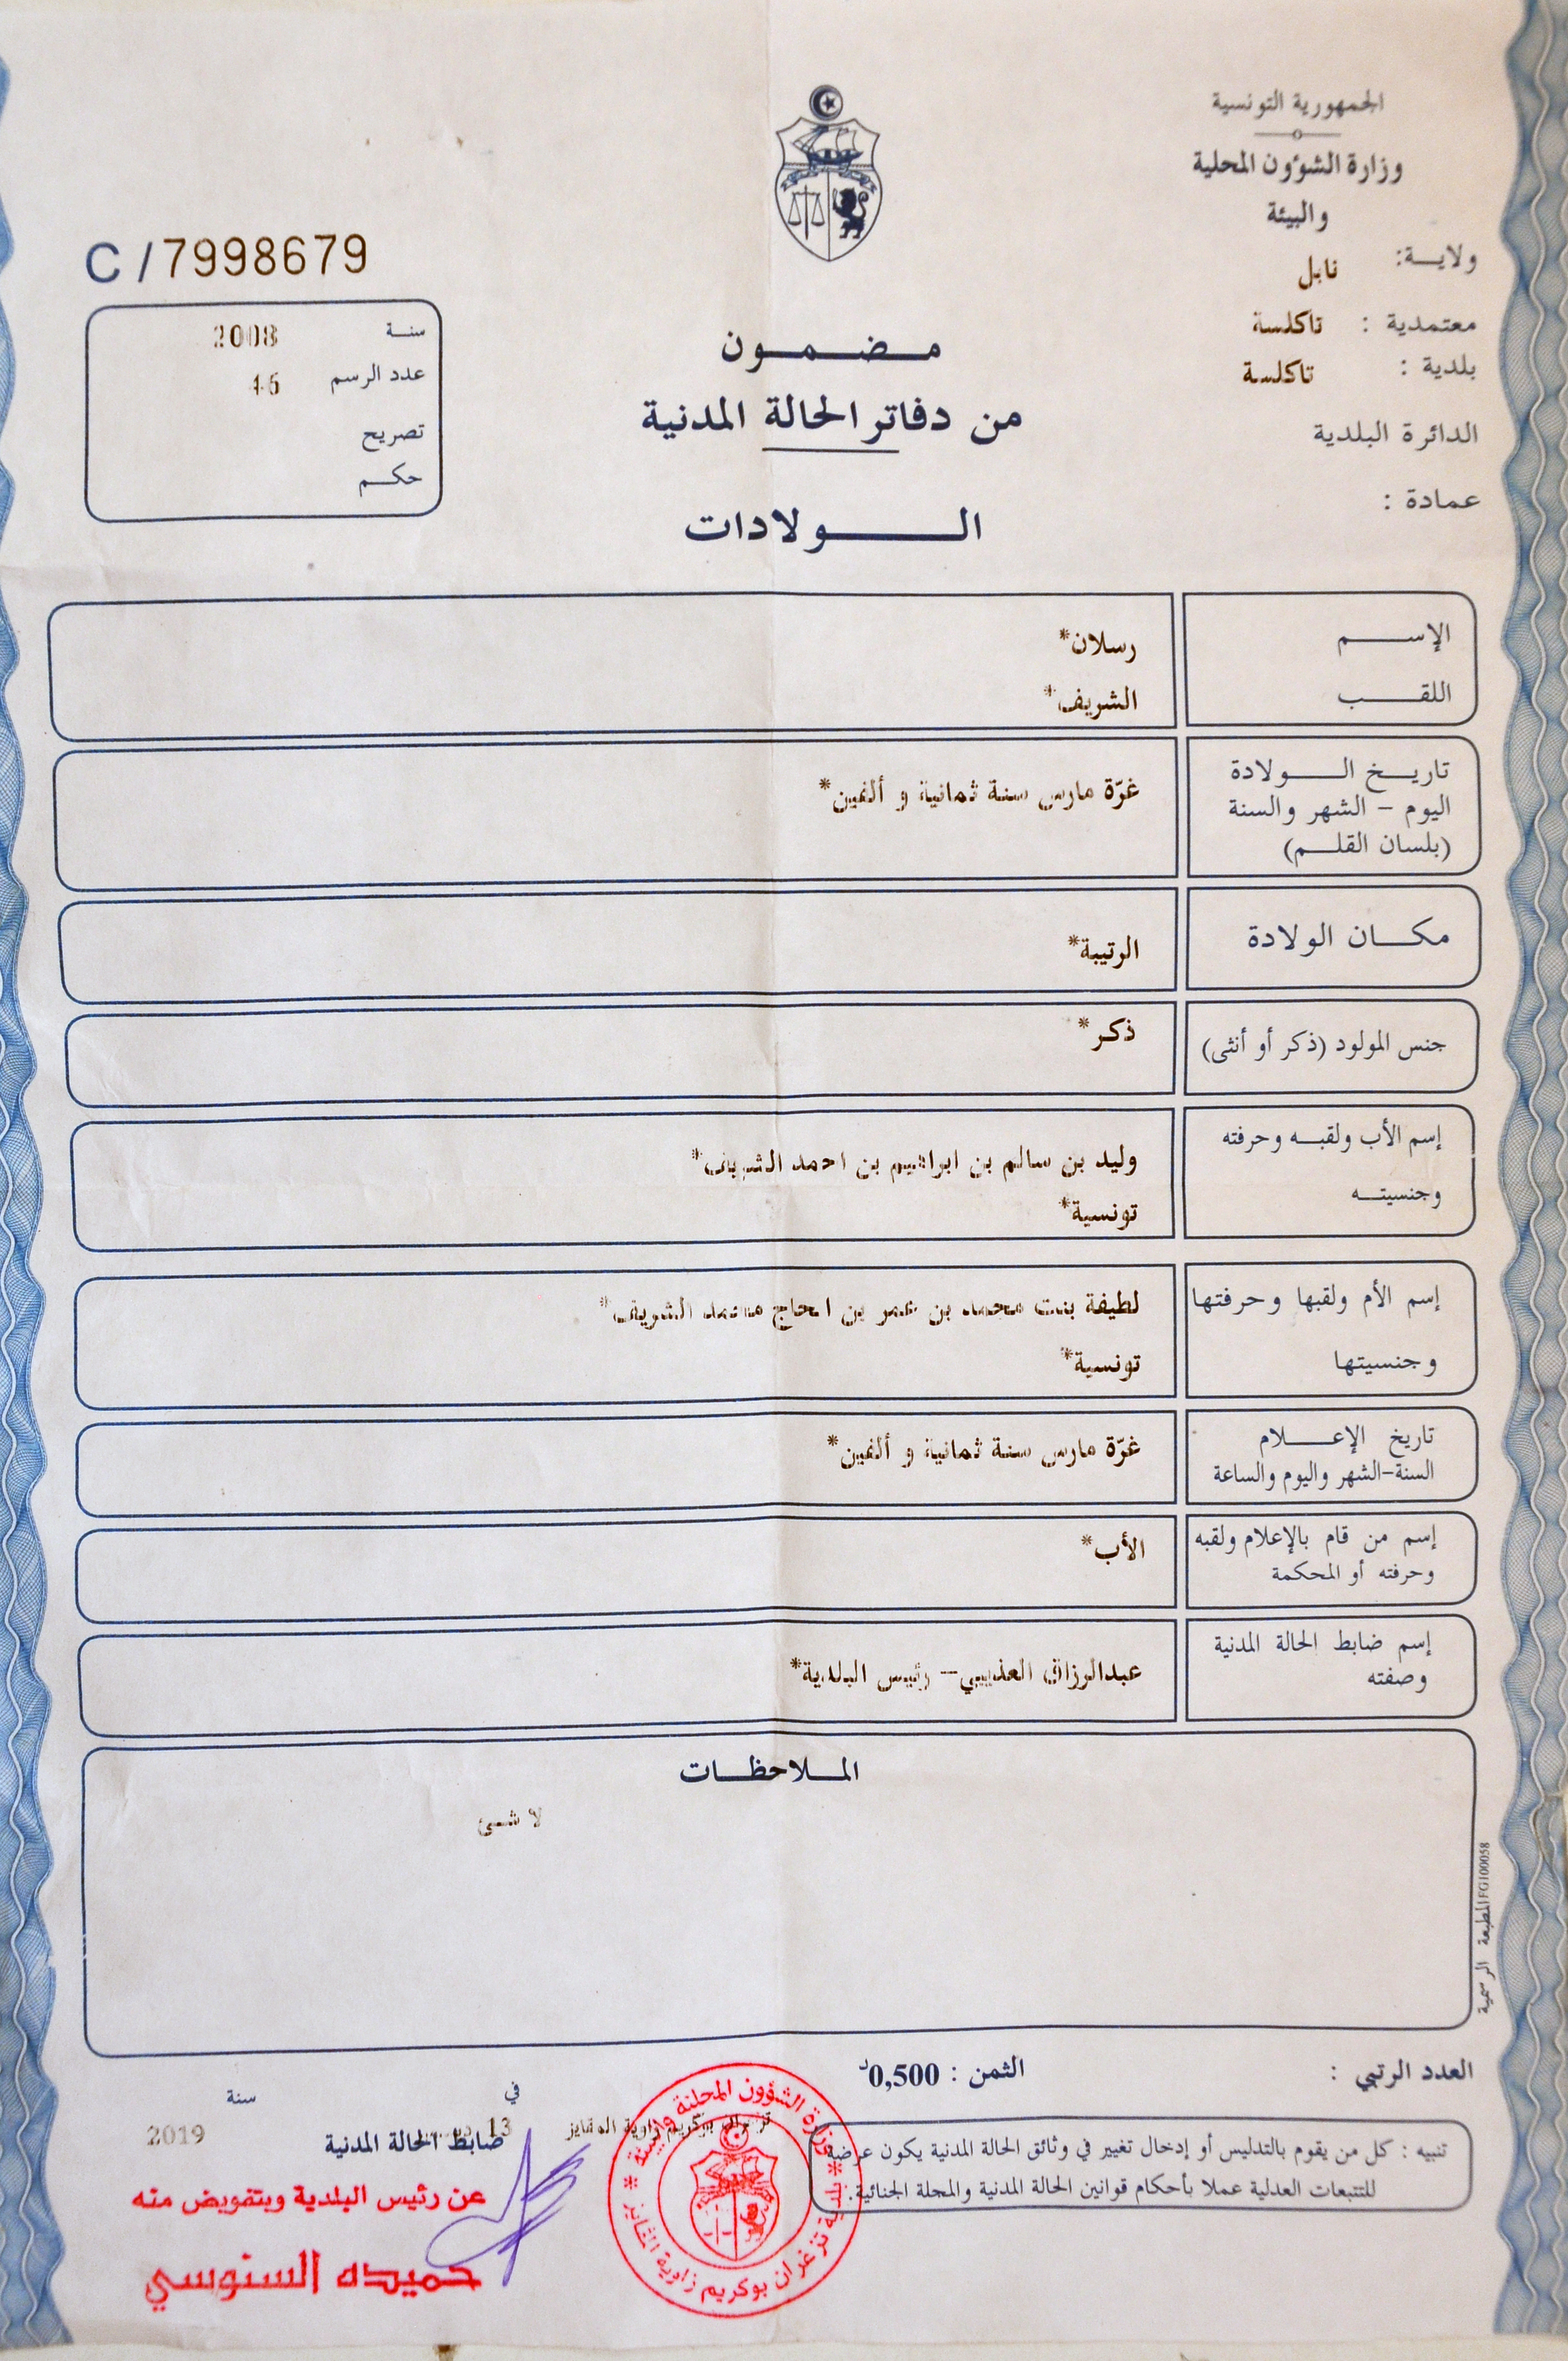 الجمهورية التونسية
وزارة الشؤون المحلية
والبيئة
ولايــة: نابل
معتمدية : تاكلسة
بلدية : تاكلسة
الدائرة البلدية
عمادة :
C/7998679
سنـة 2008
عدد الرسم
تصريح
حكـم
مـضـمـون
من دفاتر الحالة المدنية
الـــولادات
الإســـم رسلان*
اللقـــب الشريف*
تاريـخ الـــولادة
اليوم - الشهر والسنة غرّة مارس سنة ثمانية و ألفين*
(بلسان القلـم)
مكـــان الولادة الرتيبة*
جنس المولود (ذكر أو أنثى) ذكر*
إسم الأب ولقبـه وحرفته وليد بن سالم بن ابراهيم بن احمد الشريف*
وجنسيتـه تونسية*
إسم الأم ولقبها وحرفتها لطيفة بنت محمد بن عمر بن الحاج محمد الشريف*
وجنسيتها تونسية*
تاريخ الإعـــلام غرّة مارس سنة ثمانية و ألفين*
السنة-الشهر واليوم والساعة
إسم من قام بالإعلام ولقبه الأب*
وحرفته أو المحكمة
إسم ضابط الحالة المدنية عبدالرزاق العذيبي- رئيس البلدية*
وصفته
المـلاحظـات
لا شئ
المطبعة الرسمية FG100058
العدد الرتبي :
الثمن : 0,500د
تنبيه : كل من يقوم بالتدليس أو إدخال تغيير في وثائق الحالة المدنية يكون عرضة
للتتبعات العدلية عملا بأحكام قوانين الحالة المدنية والمجلة الجنائية.
في سنة
تزغران بوكريم زاوية المقايز 13 2019
ضابط الحالة المدنية
عن رئيس البلدية وبتفويض منه
حميده السنوسي
وزارة الشؤون المحلية والبيئة
بلدية تزغران بوكريم زاوية المقايز